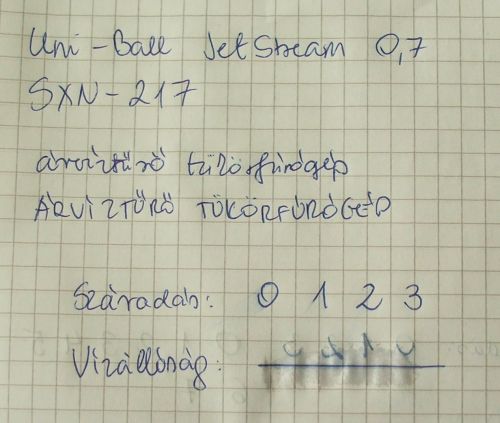 Uni-Ball JetStream 0,7
SXN-217
árvíztűrő tükörfúrógép
ÁRVÍZTŰRŐ TÜKÖRFÚRÓGÉP
Száradás: 0 1 2 3
Vízállóság: